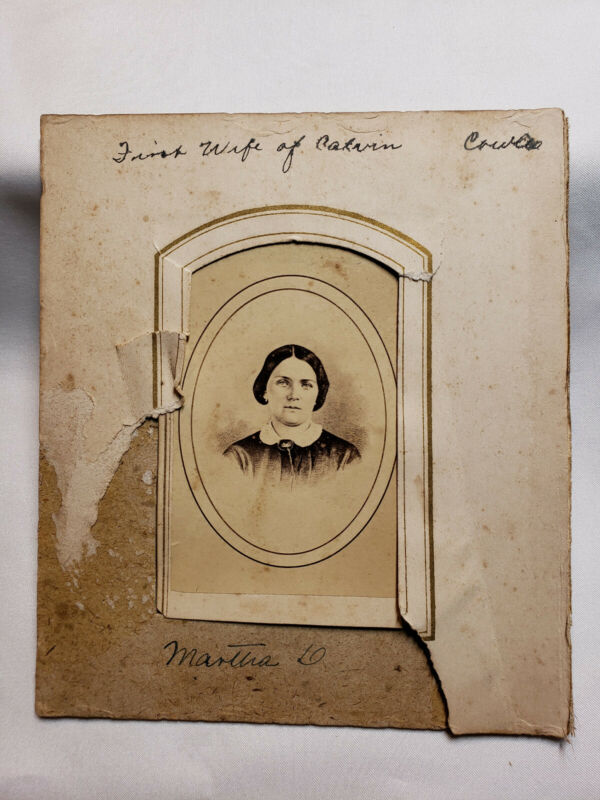 First Wife of Calvin Cowles
Martha D